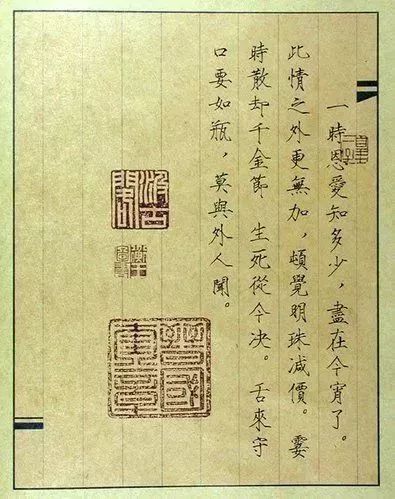 一時恩愛知多少，盡在今宵了。
此情之外更無加，頓覺明珠减價。霎
時散却千金節 生死從今决。舌來守
口要如瓶，莫與外人聞。